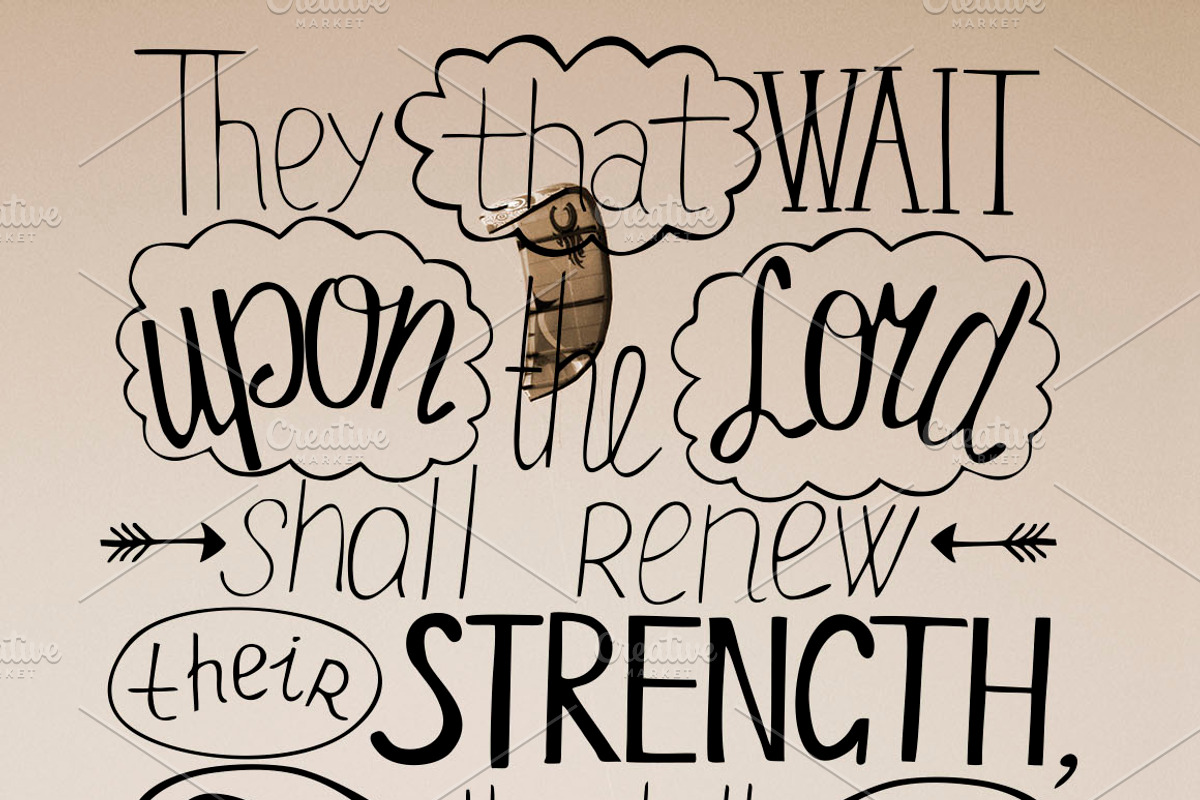 They that WAIT
upon the Lord
shall Renew
their STRENGTH,
Creative
MARKET